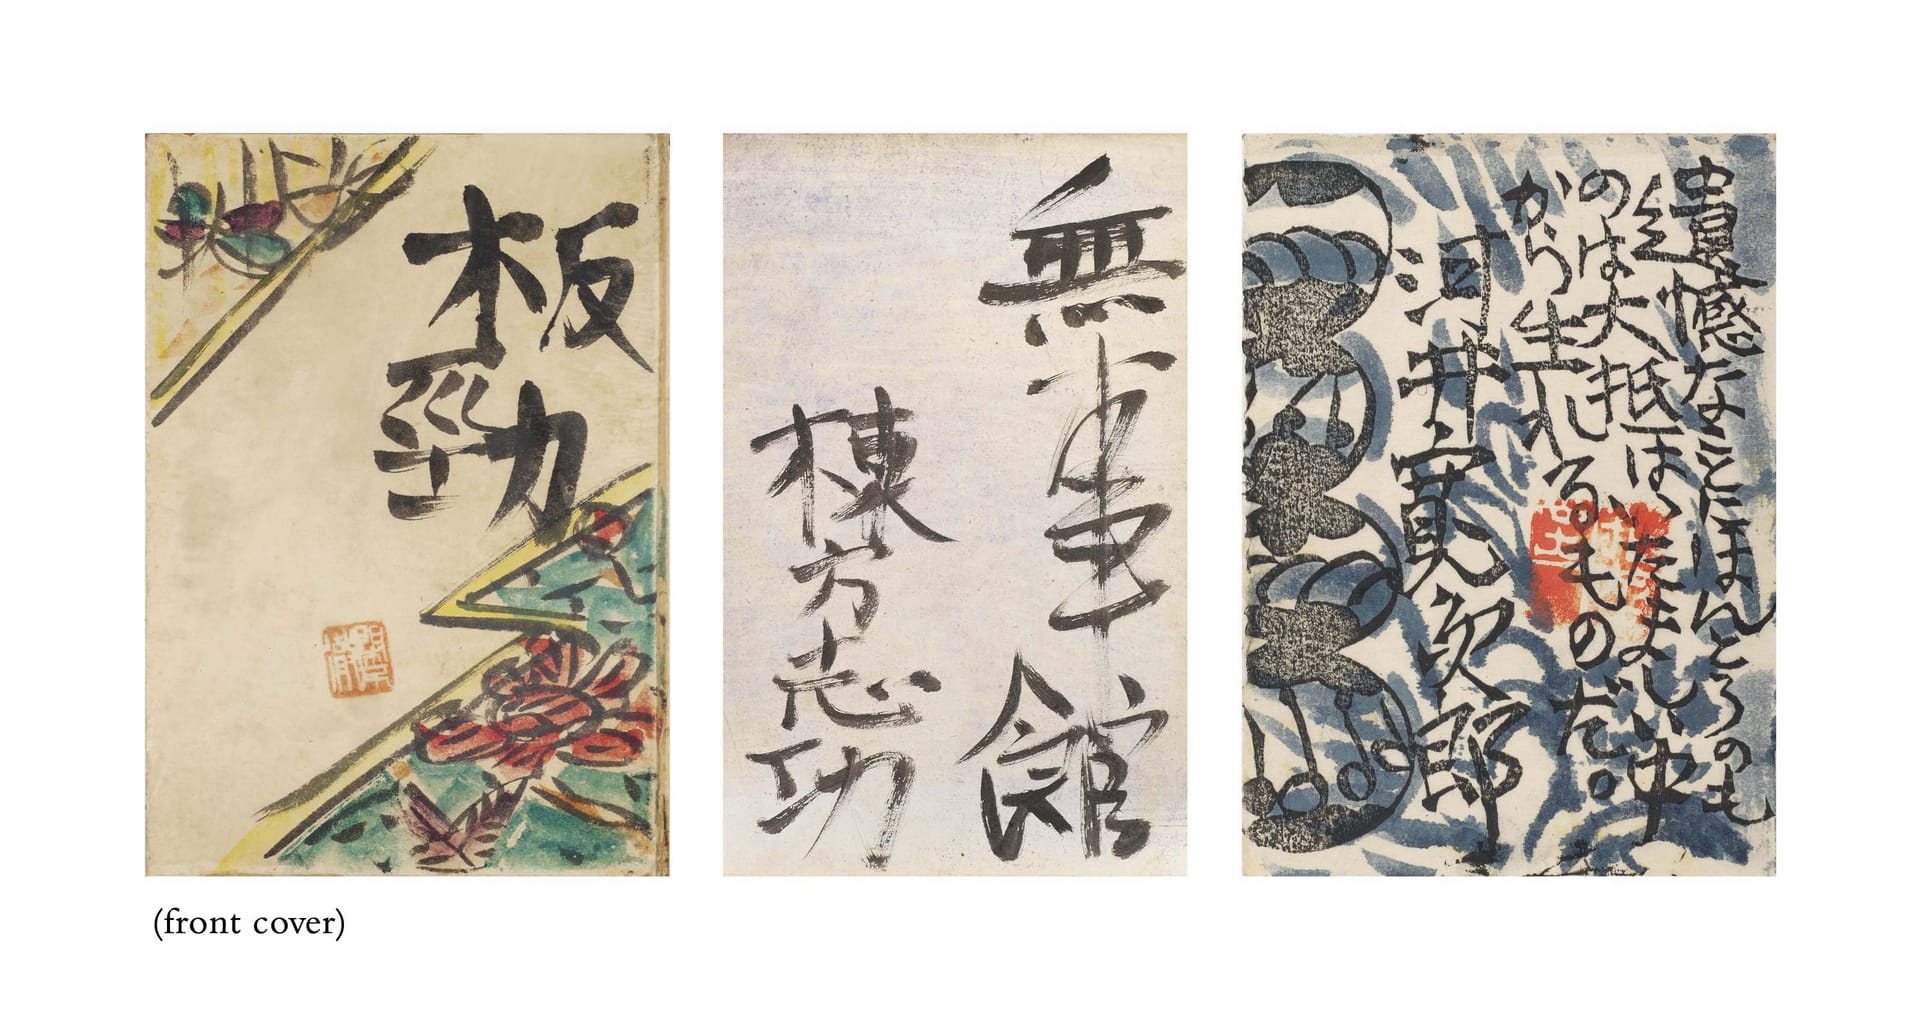 板勁
無事館
棟方志功
遺憾なことにほんとうのも
のは大抵はいたましい中
から生れるものだ。
河井寛次郎
(front cover)